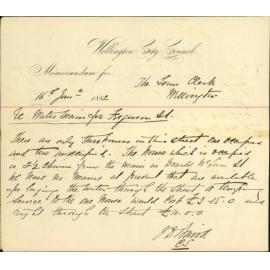 Wellington City Council.
Memorandum for
The Town Clerk
16th June 1892 Wellington
Re Water Main for Ferguson St.
There are only three houses in this street one occupied
and two unoccupied. The House which is occupied
is from the main in St
We have no mains at present that are available
for laying the water through the street. A temp
service to the one House would cost £3.15.0 and
right through the Street £10.0.0